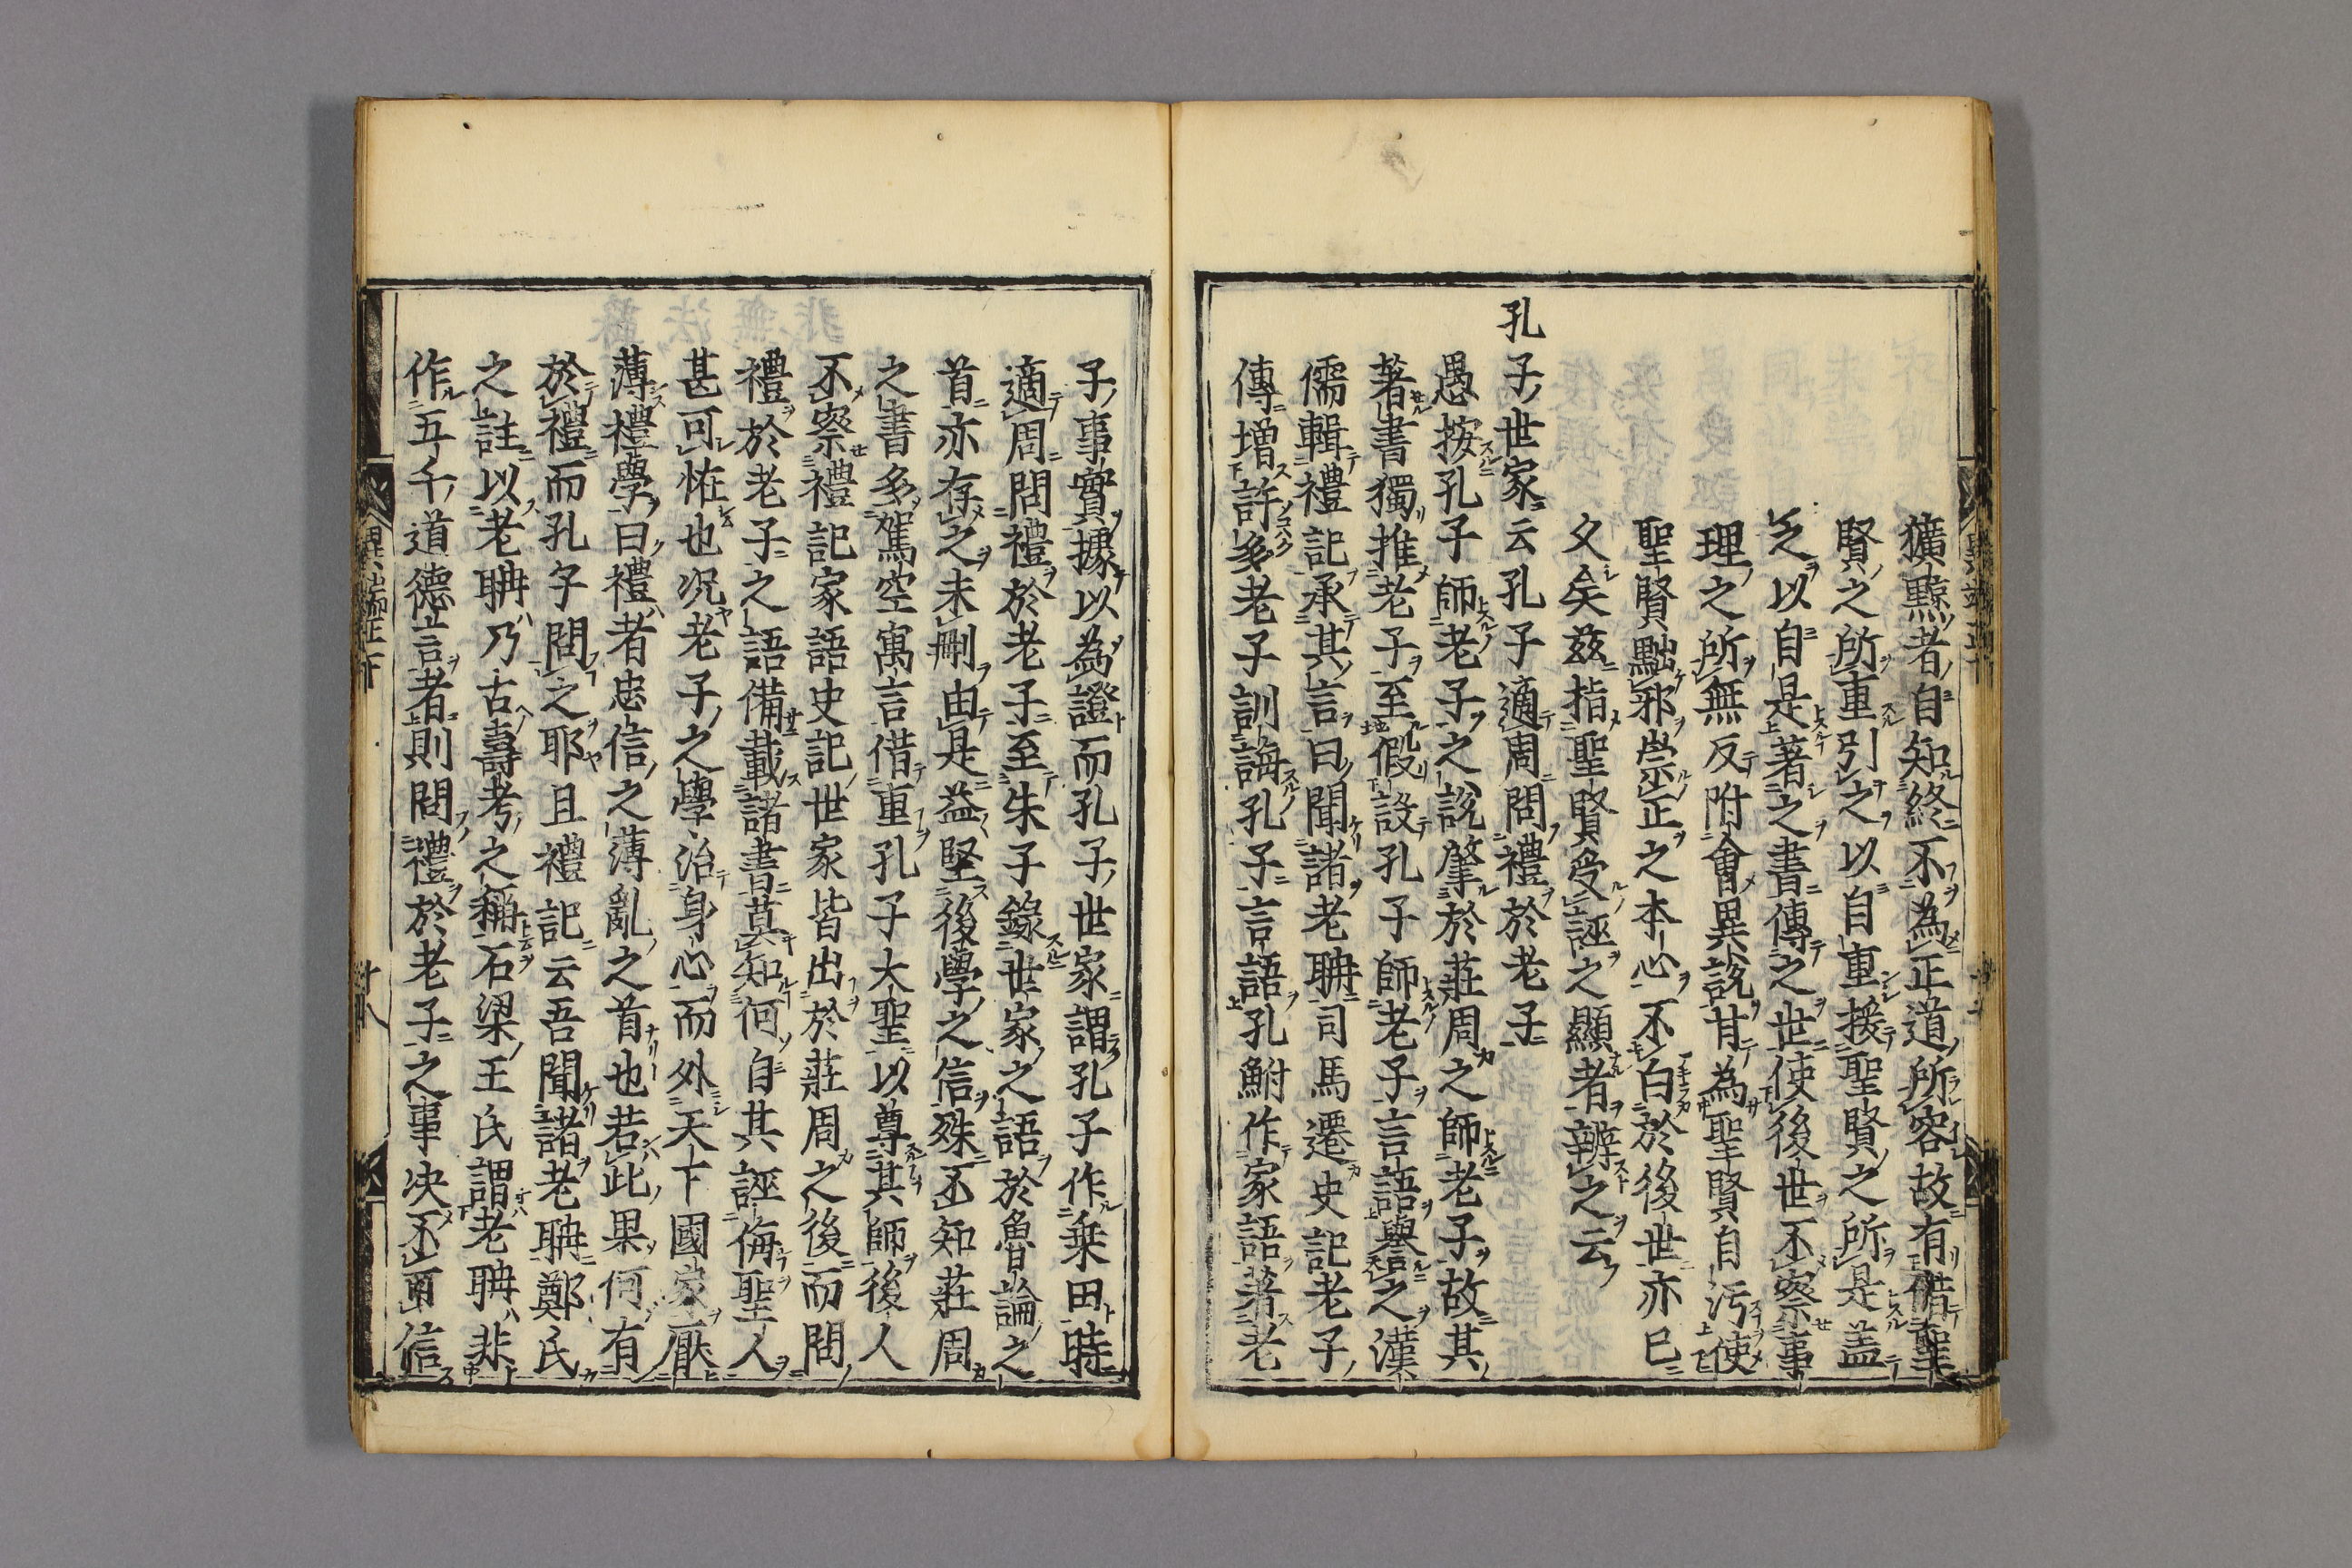 獷黥者自知終不為正道所容故有借聖
賢之所重引之以自重援聖賢之所是盖
之以自是著之書傳之世使後世不察事
理之所無反附會異說甘為聖賢自汚使
聖賢黜邪崇正之本心不白於後世亦已
久矣玆指聖賢受誣之顯者辨之云
孔子世家云孔子適周問禮於老子
愚按孔子師老子之說肇於莊周之師老子故其
著書獨推老子至假設孔子師老子言語譽之漢
儒輯禮記承其言曰聞諸老聃司馬遷史記老子
傳增許多老子訓誨孔子言語孔鮒作家語著老
子事實據以為證而孔子世家謂孔子作乗田時
適周問禮於老子至朱子錄世家之語於魯論之
首亦存之未刪由是益堅後學之信殊不知莊周
之書多駕空寓言借重孔子大聖以尊其師後人
不察禮記家語史記世家皆出於莊周之後而問
禮於老子之語備載諸書莫知何自其誣侮聖人
甚可恠也况老子之學治身心而外天下國家厭
薄禮學曰禮者忠信之薄亂之首也若此果何有
於禮而孔子問之耶且禮記云吾聞諸老聃鄭氏
之註以老聃乃古壽考之稱石梁王氏謂老聃非
作五千道德言者則問禮於老子之事决不可信
異端辯正下
十八